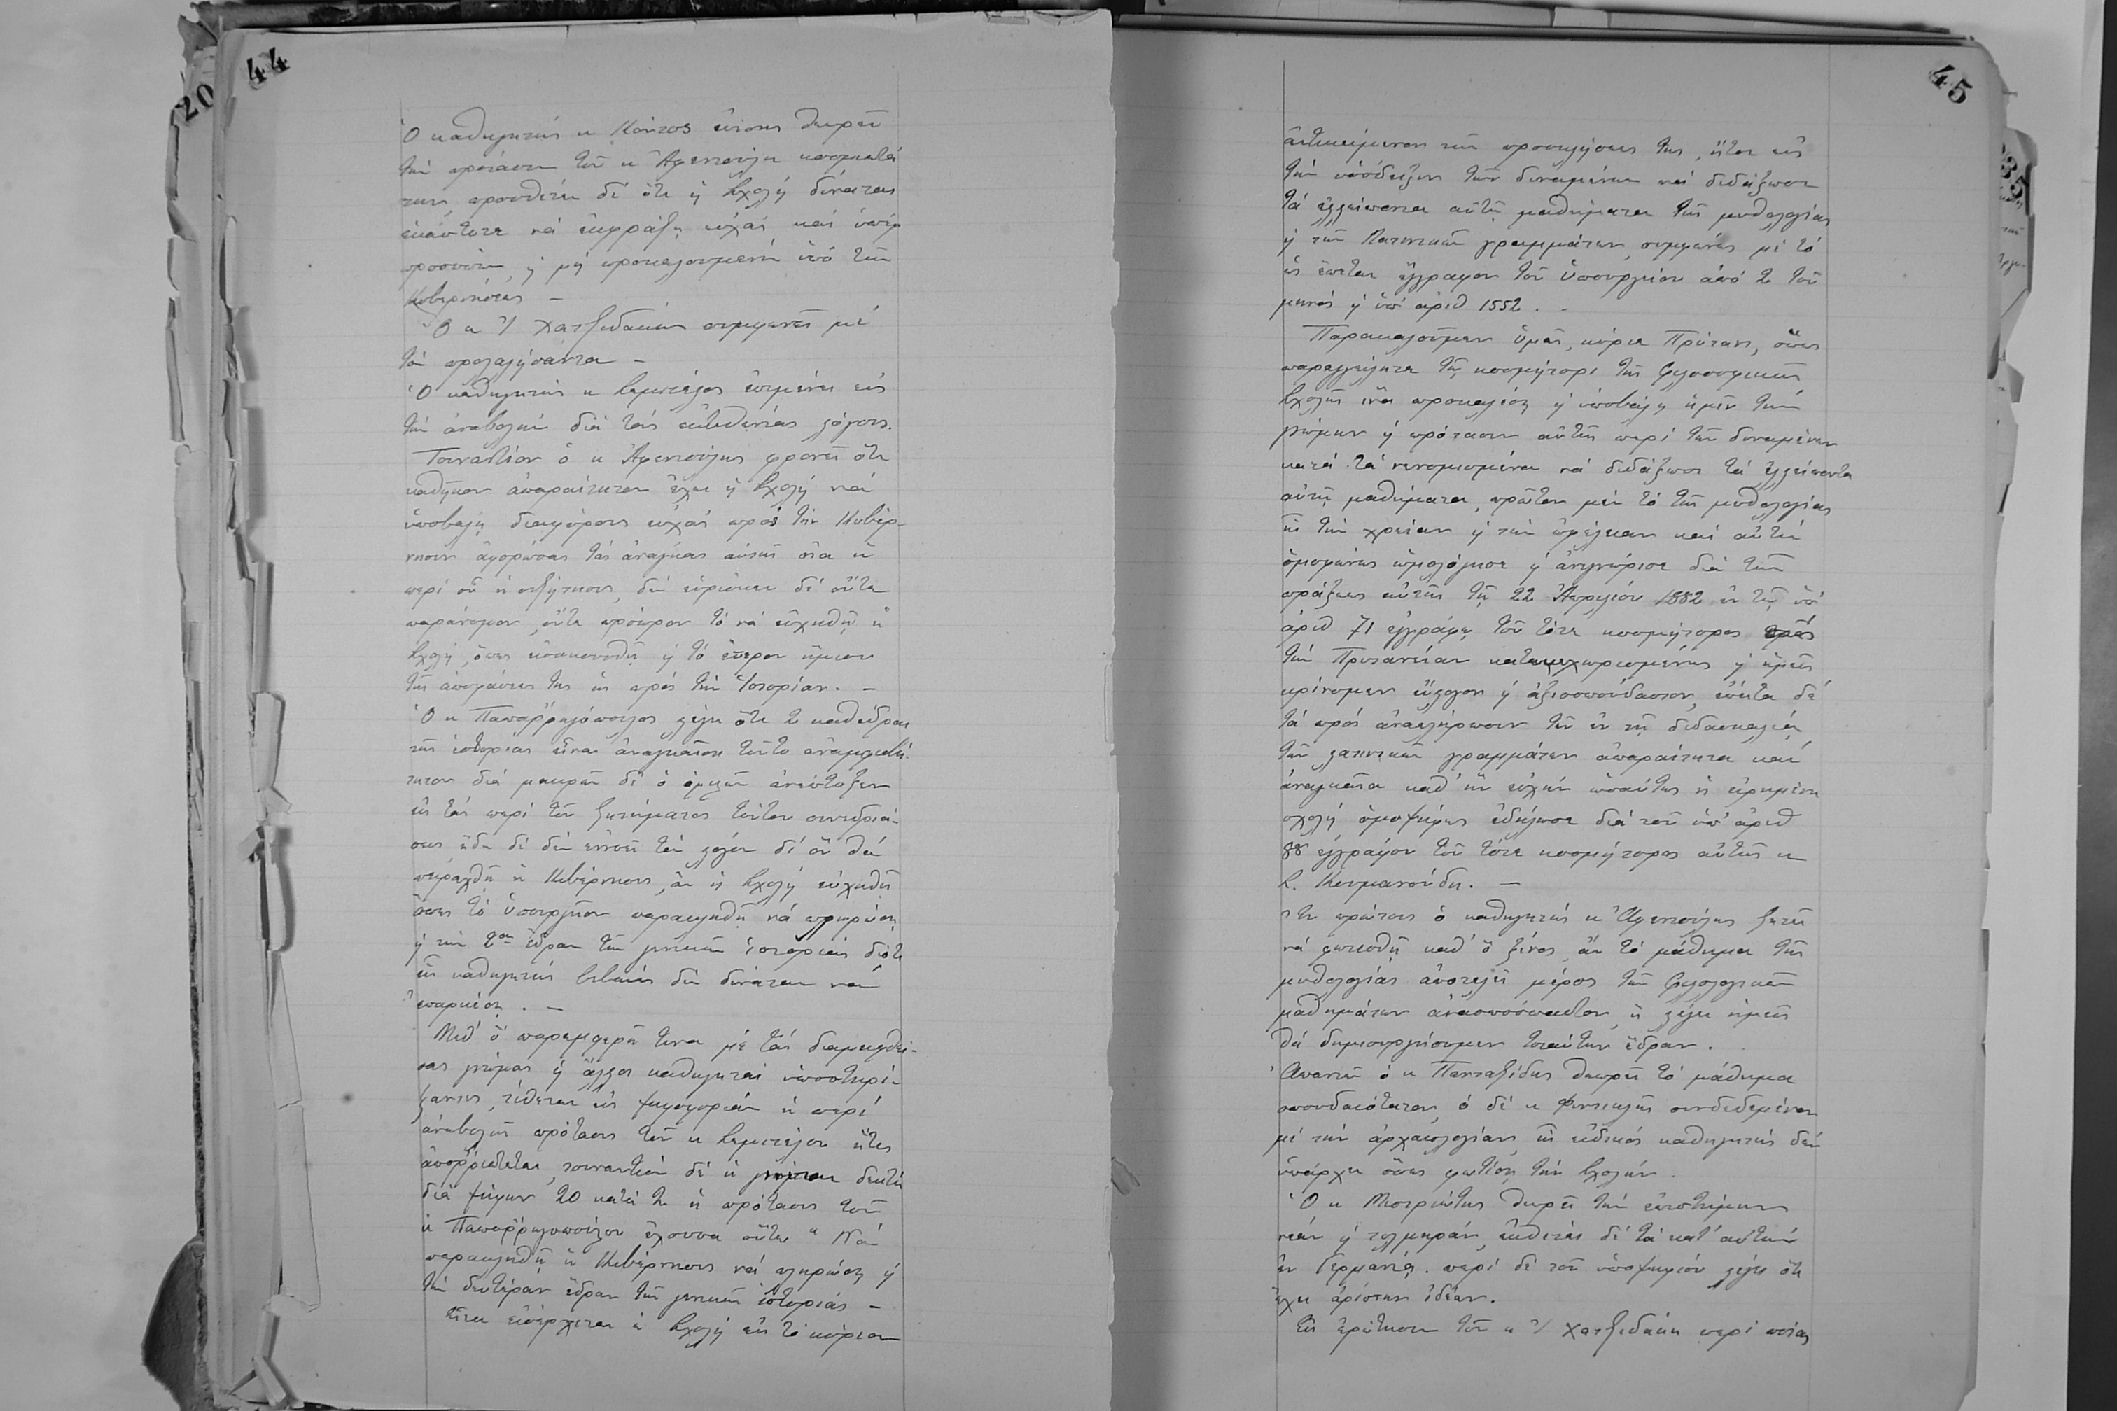 44
20
Ὁ καθηγητής κ Κόντος ἐπίσης θεωρεῖ
τήν πρότασιν τοῦ κ Ἀφεντούλη
προσθέτει δέ ὅτι ἡ Σχολή δύναται
ἑκάστοτε νά ἐκφράζῃ εὐχάς καί ὑπέρ
προσώπων, ἤ μή προσκαλουμένη ὑπό τῆς
Κυβερνήσεως —
Ὁ κ Γ Χατζιδάκις συμφωνεῖ μέ
τά προλαλήσαντα —
Ὁ καθηγητής κ Σεμιτέλος ἐπιμένει εἰς
τήν ἀναβολήν διά τούς ἐκτεθέντας λόγους.
Τοὐναντίον ὁ κ Ἀφεντούλης φρονεῖ ὅτι
καθῆκον ἀπαραίτητον ἔχει ἡ Σχολή νά
ὑποβάλῃ διαφόρους εὐχάς πρός τήν Κυβέρ-
νησιν ἀφορώσας τάς ἀνάγκας αὐτῆς οἵα ἡ
περί οὗ ἡ συζήτησις, δέν εὑρίσκει δέ οὔτε
παράνομον, οὔτε πρόωρον τό νά εὐχηθῇ ἡ
Σχολή, ὅπως εἰσακουσθῇ ᾗ τό ἕτερον ἥμισυ
τῆς ἀποφάσεώς της ὡς πρός τήν Ἱστορίαν. —
Ὁ κ Παπαρρηγόπουλος λέγει ὅτι 2 καθέδραι
τῆς ἱστορίας εἶναι ἀναγκαῖαι τοῦτο ἀναμφισβή-
τητον διά μακρῶν δέ ὁ ὁμιλῶν ἀνέπτυξεν
εἰς τάς περί τοῦ ζητήματος τούτου συνεδριά-
σεις ἤδη δέ δέν ἐννοεῖ τόν λόγον δι' ὅν θά
πειραχθῇ ἡ Κυβέρνησις, ἄν ἡ Σχολή εὐχηθῇ
ὅπως τό Ὑπουργεῖον παρακληθῇ νά πληρώσῃ
ᾗ τήν 2αν ἕδραν τῆς γενικῆς ἱστορίας διότι
εἷς καθηγητής βεβαίως δέν δύναται νά
ἐπαρκέσῃ. —
Μεθ' ὅ παρεμφερῆ τινα μέ τάς διαμειφθεί-
σας γνώμας ᾗ ἄλλοι καθηγηταί ὑποστηρί-
ξαντες, τίθεται εἰς ψηφοφορίαν ἡ περί
ἀναβολῆς πρότασις τοῦ κ Σεμιτέλου ἥτις
ἀπορρίπτεται, τοὐναντίον δέ ἡ γίνεται δεκτή
διά ψήφων 20 κατά 2 ἡ πρότασις τοῦ
κ Παπαρρηγοπούλου ἔχουσα οὕτω "Νά
παρακληθῇ ἡ Κυβέρνησις νά πληρώσῃ ᾗ
τήν δευτέραν ἕδραν τῆς γενικῆς ἱστορίας —
Εἶτα εἰσέρχεται ἡ Σχολή εἰς τό κύριον
45
ἀντικείμενον τῆς προσκλήσεώς της, ἤτοι εἰς
τήν ὑπόδειξιν τῶν δυναμένων νά διδάξωσι
τά ἐλλείποντα αὐτῇ μαθήματα τῆς μυθολογίας
ᾗ τῶν Λατινικῶν γραμμάτων, συμφώνως μέ τό
ὡς ἕπεται ἔγγραφον τοῦ Ὑπουργείου ἀπό 2 τοῦ
μηνός ᾗ ὑπ' ἀριθ 1552.
Παρακαλοῦμεν Ὑμᾶς, κύριε Πρύτανι, ὅπως
παραγγείλητε τῷ κοσμήτορι τῆς Φιλοσοφικῆς
Σχολῆς ἵνα προκαλέσῃ ᾗ ὑποβάλῃ ἡμῖν τήν
γνώμην ᾗ πρότασιν αὐτῆς περί τῶν δυναμένων
κατά τά νενομισμένα νά διδάξωσι τά ἐλλείποντα
αὐτῇ μαθήματα, πρῶτον μέν τό τῆς μυθολογίας
οὗ τήν χρείαν ᾗ τήν ὠφέλειαν καί αὐτή
ὁμοφώνως ὡμολόγησε ᾗ ἀνεγνώρισε διά τῆς
πράξεως αὐτῆς τῆς 22 Ἀπριλίου 1882 ἐν τῷ ὑπ'
ἀριθ 71 ἐγγράφῳ τοῦ τότε κοσμήτορος πρός
τήν Πρυτανείαν κατακεχωρισμένης ᾗ ἡμεῖς
κρίνομεν εὔλογον ᾗ ἀξιοσπούδαστον, ἔπειτα δέ
τά πρός ἀναπλήρωσιν τῶν ἐν τῇ διδασκαλίᾳ
τῶν λατινικῶν γραμμάτων ἀπαραίτητα καί
ἀναγκαῖα καθ' ἥν εὐχήν ὡσαύτως ἡ εἰρημένη
σχολή ὁμοψήφως ἐδήλωσε διά τοῦ ὑπ' ἀριθ
ἐγγράφου τοῦ τότε κοσμήτορος αὐτῆς κ
Σ. Κουμανούδη. —
Ἐν πρώτοις ὁ καθηγητής κ Ἀφεντούλης ζητεῖ
νά φωτισθῇ καθ' ὅ ξένος, ἄν τό μάθημα τῆς
μυθολογίας ἀποτελῇ μέρος τῶν φιλολογικῶν
μαθημάτων ἀναπόσπαστον, ἤ λέγει ἡμεῖς
θά δημιουργήσωμεν τοιαύτην ἕδραν.
Ἀπαντᾷ ὁ κ Πανταζίδης θεωρεῖ τό μάθημα
σπουδαιότατον, ὁ δέ κ Φιντικλῆς συνδεδεμένον
μέ τήν ἀρχαιολογίαν, ὡς εἰδικός καθηγητής δέν
ὑπάρχει ὅπως φωτίσῃ τήν Σχολήν.
Ὁ κ Μιστριώτης θεωρεῖ τήν ἐπιστήμην
νέαν ᾗ τολμηράν, ἐκθέτει δέ τά κατ' αὐτήν
ἐν Γερμανίᾳ. περί δέ τοῦ ὑποψηφίου λέγει ὅτι
ἔχει ἀρίστην ἰδέαν.
Εἰς ἐρώτησιν τοῦ κ Γ Χατζιδάκη περί ποίας